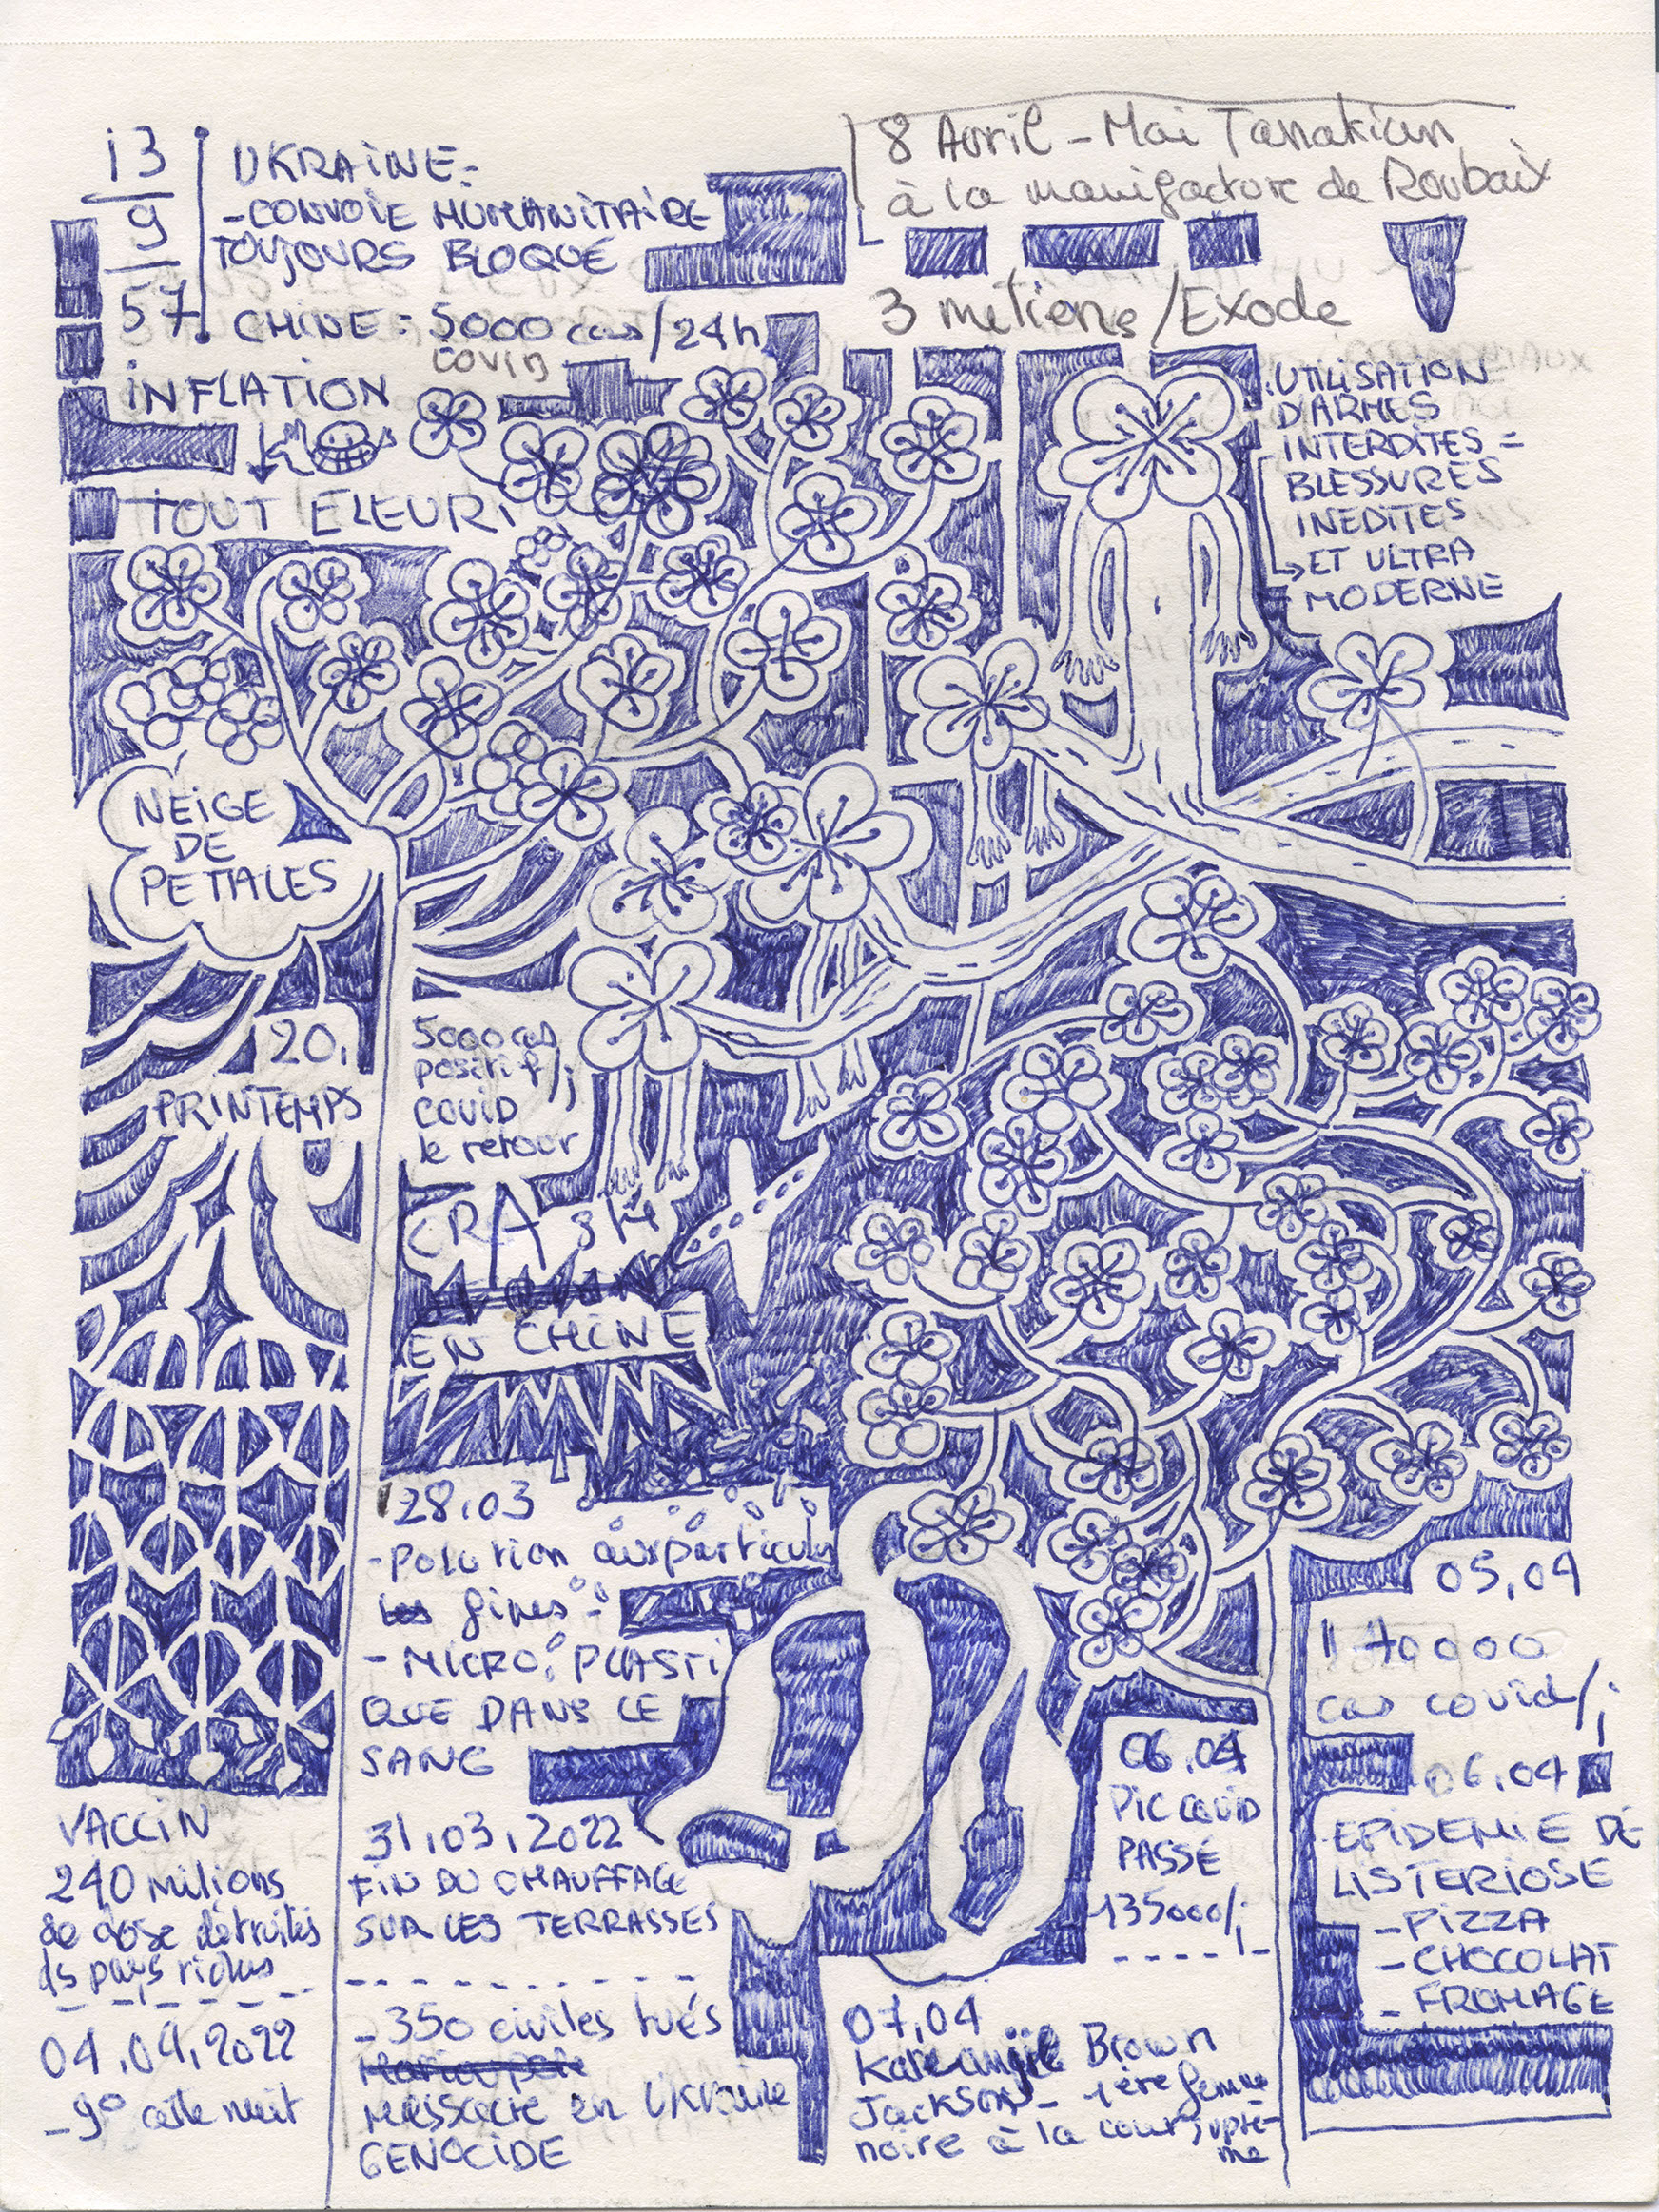 13
9
57
UKRAINE:
-CONVOIE HUMANITAIRE
TOUJOURS BLOQUÉ
CHINE: 5000 cas/24h
covid
INFLATION
TOUT FLEURI
8 Avril - Mai Tanakian
à la manifacture de Roubaix
3 métiers/Exode
UTILISATION
D'ARMES
INTERDITES =
BLESSURES
INEDITES
ET ULTRA
MODERNE
NEIGE
DE
PÉTALES
20.
PRINTEMPS
5000 cas
positif/j
COVID
le retour
CRA
EN CHINE
28.03
-Polution air particules
fines-
-MICRO PLASTI
QUE DANS LE
SANG
31.03.2022
FIN DU CHAUFFAGE
SUR LES TERRASSES
-350 civiles tués
Massacre en UKraine
GENOCIDE
VACCIN
240 milions
de dose détruites
ds pays riches
04.04.2022
-9° cette nuit
07.04
Brown
Jackson - 1ère femme
noire à la cour suprè-
me
06.04
PIC COVID
PASSÉ
135000/j
05.04
cas covid/j
06.04
EPIDEMIE DE
LISTERIOSE
-PIZZA
-CHOCOLAT
-FROMAGE